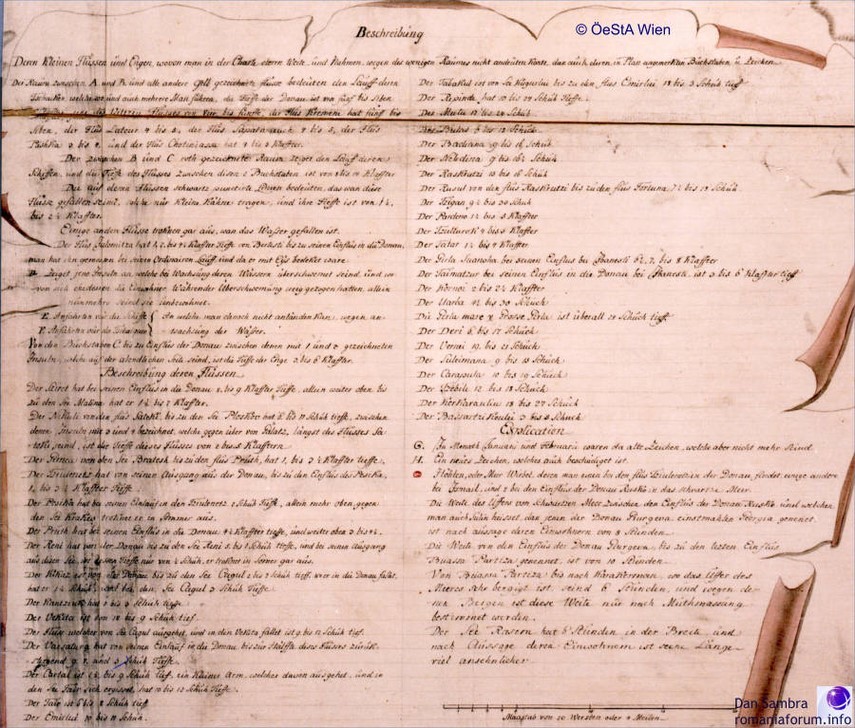 © ÖeStA Wien
Beschreibung
Deren Kleinen Flüssen und Engen, wovon man in der Charte deren Weite, und Nahmen, wegen des wenigen Raumes nicht andeuten könte, dan auch deren in Plan angemerkten Buchstaben u. Zeichen.
Der Raum zwischen A und B und alle andere Gelb gezeichnete Flüsse bedeuten den Lauff deren
und auch mehrere Man führen, die Tieffe der Donau ist von fünf bis sieben
bis fünffe, der Flus Kremeni hat fünf bis
Sieben, der Flus Lateur 4 bis 5, der Flus Sapata auch 4 bis 5, der Flus
Pashka 3 bis 4, und der Flus Chotiniassa hat 4 bis 5 Klaffter.
Der zwischen B und C roth gezeichnete Raum zeiget den Lauff deren
Schiffen, und die Tieffe des Flusses zwischen disen 2 Buchstaben, ist von 8 bis 10 Klaffter
Die auf deren Flüssen schwartz punctirte Linien bedeuten, das wan dise
Flüsse gefallen seind, solche nur Kleine Kähne tragen, und ihre Tieffe ist von 1½
bis 2½ Klaffter.
Einige andere Flüsse troknen gar aus, wan das Wasser gefallen ist.
Der Flus Jalomitza hat 1, 2, bis 2½ Klaffter Tieffe von bis zu seinen Einflus in die Donau,
man hat ihn genauen bey seinen Ordinairen Lauff und da er mit Eys bedekt ware
D. Zeiget jene Inseln an, welche bey Wachsung deren Wässern überschwemet seind, und wo-
von sich ehedessen die Einwohner Währender Überschwemung weeg gezogen hatten, allein
nunmehro seind sie unbewohnet.
E. Anfuhrten vor die Schiffe
F. Anfuhrten vor die
An welche man danoch nicht anländen kan, wegen an-
wachsung der Wässer.
Von den Buchstaben C bis zu Einflus der Donau zwischen denen mit 1 und 2 gezeichneten
Insuln, welche auf der abendlichen Seite seind, ist die Tieffe der Enge 5 bis 6 Klaffter.
Beschreibung deren Flüssen.
Der Siret hat bei seinen Einflus in die Donau 8 bis 9 Klaffter Tieffe, allein weiter oben bis
zu den See Malina hat er 1½ bis 2 Klaffter.
Der Filiuli von den flus Sateki, bis zu den See Ploskoe hat 8 bis 10 Schuh tieffe, zwischen
denen Inseln mit 3 und 4 bezeichnet, welche gegen über von Galatz, längst des Flusses Sa-
teki seind, ist die Tieffe dieses Flusses von 2 bis 5 Klafftern.
Der Gineca von den See Bratesh bis zu den flus Pruth, hat 1, bis 2½ Klaffter tieffe.
Der hat von seinen Ausgang aus der Donau, bis zu den Einflus des Posika,
1, bis 2½ Klaffter Tieffe.
Der Posika hat bei seinen Einlauf in den 2 Schuh Tieffe, allein mehr oben gegen
den See Krakeg troknet er in Sommer aus.
Der Pruth hat bei seinen Einflus in die Donau 4½ Klaffter tieffe, und weiter oben 3 bis 4½
Der Reni hat von der Donau bis zu den See Reni 5 bis 6 Schuh tieffe, und bei seinen Ausgang
aus disen See, ist dessen Tieffe nur von ½ Schuh, er troknet in Somer gar aus.
Der Kikez ist von der Donau bis zu den See Cagul 2 bis 3 Schuh tieff, wo er in die Donau fallet,
hat er 1½ Schuh, und bei den See Cagul 2 Schuh Tieffe.
Der hat 2 bis 3 Schuh tieffe.
Der Vekita ist von 10 bis 9 Schuh tief
Der Flus welcher von See Cagul ausgehet, und in den Vekita fallet, ist 9 bis 10 Schuh tief.
Der hat von seinen Einlauf in die Donau, bis zur Hälffte dises Flusses zurük-
steigend 9, 8, und 3 Schuh Tieffe.
Der Cartal ist 1½, bis 9 Schuh tief, ein Kleiner Arm, welcher davon ausgehet, und in
den See Jair sich ergisset, hat 10 bis 12 Schuh Tieffe.
Der Jair ist 6 bis 8 Schuh tieff
Der Emirlui 10 bis 11 Schuh.
Der Tabakul ist von See Kugurlui bis zu den flus Emirlui 18 bis 3 Schuh tief
Der Repinta hat 10 bis 14 Schuh Tieffe.
Der Meila 12 bis 24 Schuh
Der 8 bis 12 Schuh.
Der Badiana 19 bis 16 Schuh
Der Nikolina 9 bis 16½ Schuh
Der Raskrutzi 18 bis 16 Schuh
Der Rusul von den flus Raskrutzi bis zu den flus Fortuna 7½ bis 13 Schuh
Der Zigan 9½ bis 30 Schuh
Der Pardina 12 bis 8 Klaffter
Der 4 bis 8 Klaffter
Der Tatar 1½ bis 4 Klaffter
Der Girla Suanska bei seinen Einflus bei Shanesti 6½, 7, bis 8 Klaffter
Der Taimatzur bei seinen Einflus in die Donau bei Shanesti, ist 3 bis 6 Klaffter tieff
Der Hornoi 2 bis 2½ Klaffter
Der Ulanka 4½ bis 30 Schuch
Die Girla mare & Grosse Girla ist überall 29 Schuch tieff
Der Deri 8 bis 17 Schuch
Der Vernai 19 bis 21 Schuch
Der Suleimana 9 bis 18 Schuch
Der Carasuta 10 bis 19 Schuch
Der Rebile 12 bis 18 Schuch
Der Kis Karaului 18 bis 27 Schuch
Der Bassartzikului 3 bis 8 Schuch
Explication
G. In Monath Januarii und Februarii waren da alte Zeichen, welche aber nicht mehr Seind
H. Ein neues Zeichen, welches auch beschädiget ist.
Höhlen, oder Meer Wirbel, deren man einen bei den flus in der Donau findet, einige andere
bei Ismail, und 2 bei den Einflus der Donau Ruska in das schwartze Meer.
Die Weite des Uffers von Schwartzen Meer zwischen den Einflus der Donau Ruska und welchen
man auch Sulin heisset, dan jenen der Donau Giurgeva einstmahlen Georgia genenet
ist nach aussage deren Einwohnern von 9 Stunden.
Die Weite von den Einflus der Donau Giurgeva, bis zu den lezten Einflus
Kutasse Partiza genennet, ist von 10 Stunden
Von Kutasse Partiza bis nach Karakerman, wo das Uffer des
Meeres sehr bergigt ist, seind 6 Stunden, und wegen de-
nen Bergen ist diese Weite nur nach Muthmassung
bestimmet worden.
Der See Rasem hat 6 Stunden in der Breite und
nach Aussage deren Einwohnern ist seine Länge
viel ansehnlicher
Maasstab von 20 Wersten oder 4 Meilen.
Dan Sambra
romaniaforum.info